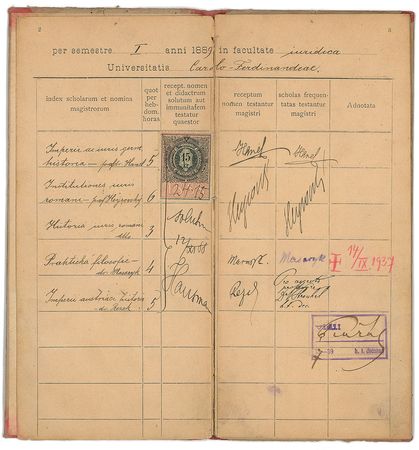 2
3
per semestre I anni 1889 in facultate iuridica
Universitatis Carolo-Ferdinandeae.
index scholarum et nomina magistrorum
quot per hebdom. horas
recept. nomen et didactrum solutum aut immunitatem testatur quaestor
receptum nomen testantur magistri
scholas frequentatas testantur magistri
Adnotata
Imperii ac iuris germ.
historia — prof. Hanel 5
Institutiones iuris
romani — prof. Heyrovský 6
Historia iuris romani
3
Praktická filosofie —
dr Masaryk 4
Imperii austriac. historia
dr Rezek 5
15
24·15
solutum
Hanel
Hanel
Heyrovský
Heyrovský
Masaryk
Masaryk
14/IX. 1937
Rezek